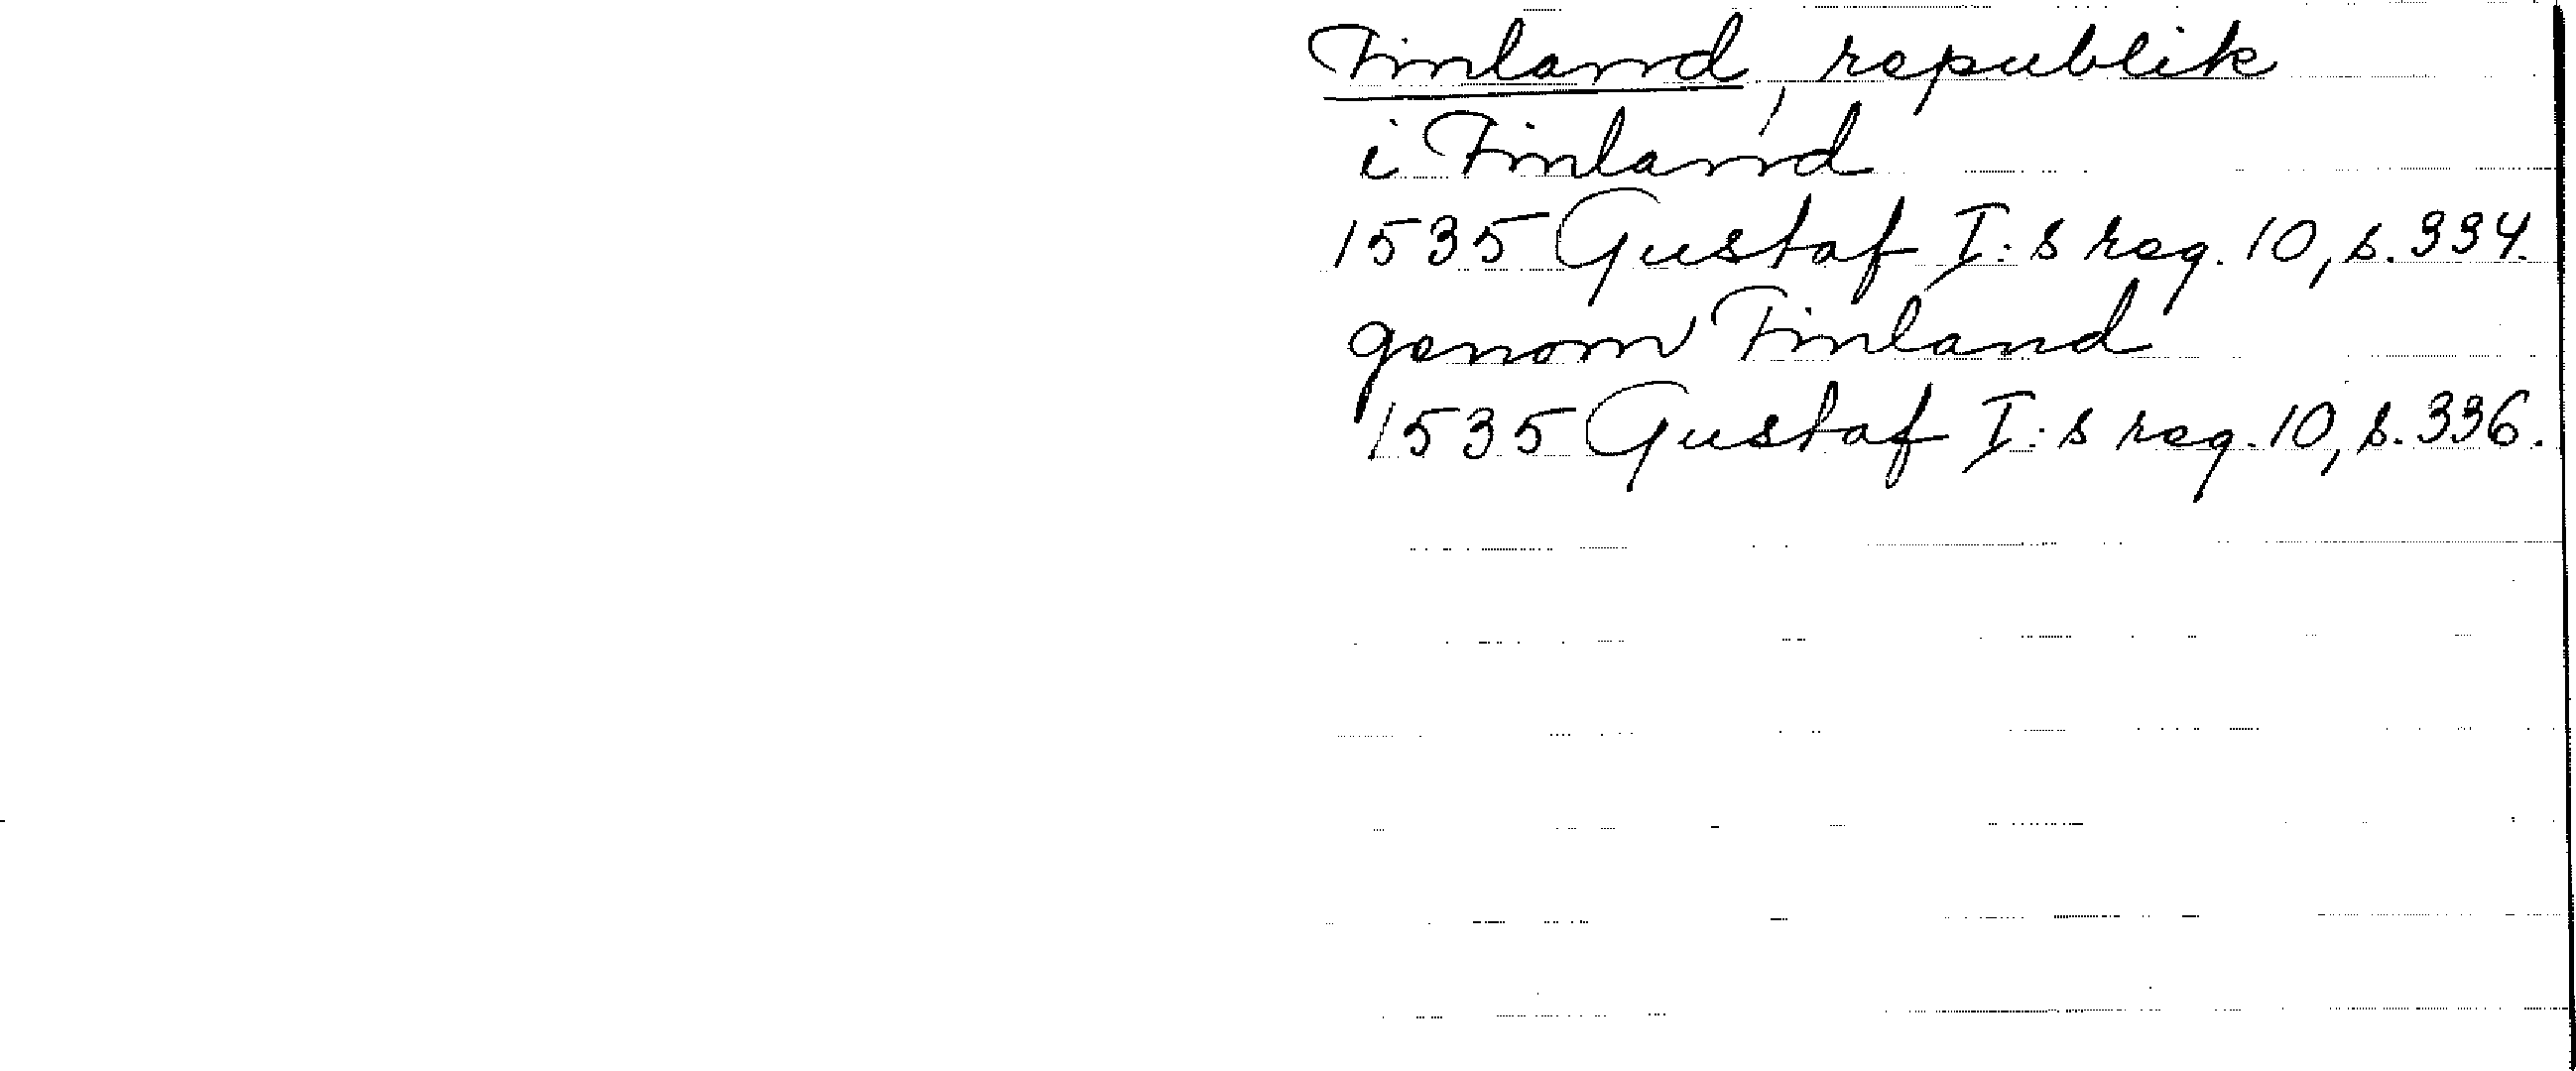 Finland, republik
i Finland
1535 Gustaf I:s reg. 10, s. 334.
genom Finland
1535 Gustaf I:s reg. 10, s. 336.